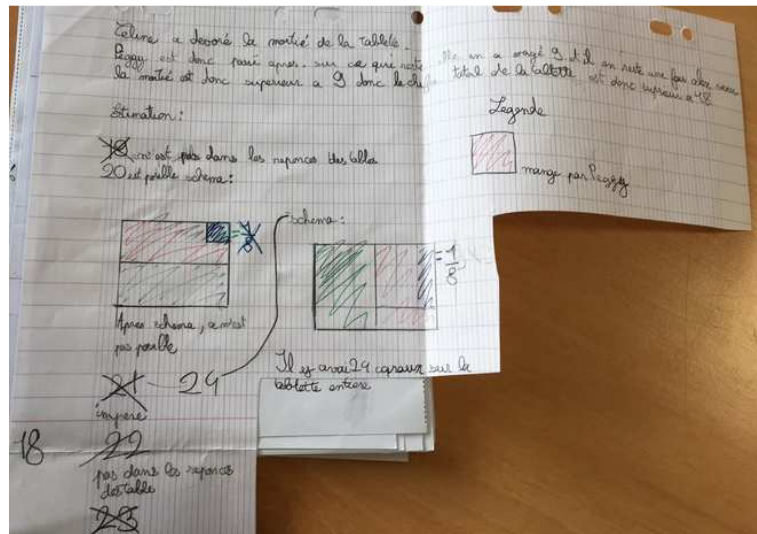 Céline a devoré la moitié de la tablette.
Peggy est donc passé apres. sur ce que reste elle en a magé 9 et il en reste une fois
la moitié est donc superieur a 9 donc le chiffre total de la tablette est donc supreur a 18
Legende
Estimation :
19 n'est pas dans les reponces des tables
mangé par Peggy
20 est posible schema :
schema :
= 1/8
Apres schema, ce n'est
pas posible
21 24
impere
Il y avai 24 caraux sur la
tablette entiere
18 22
pas dans les reponces
des table
23